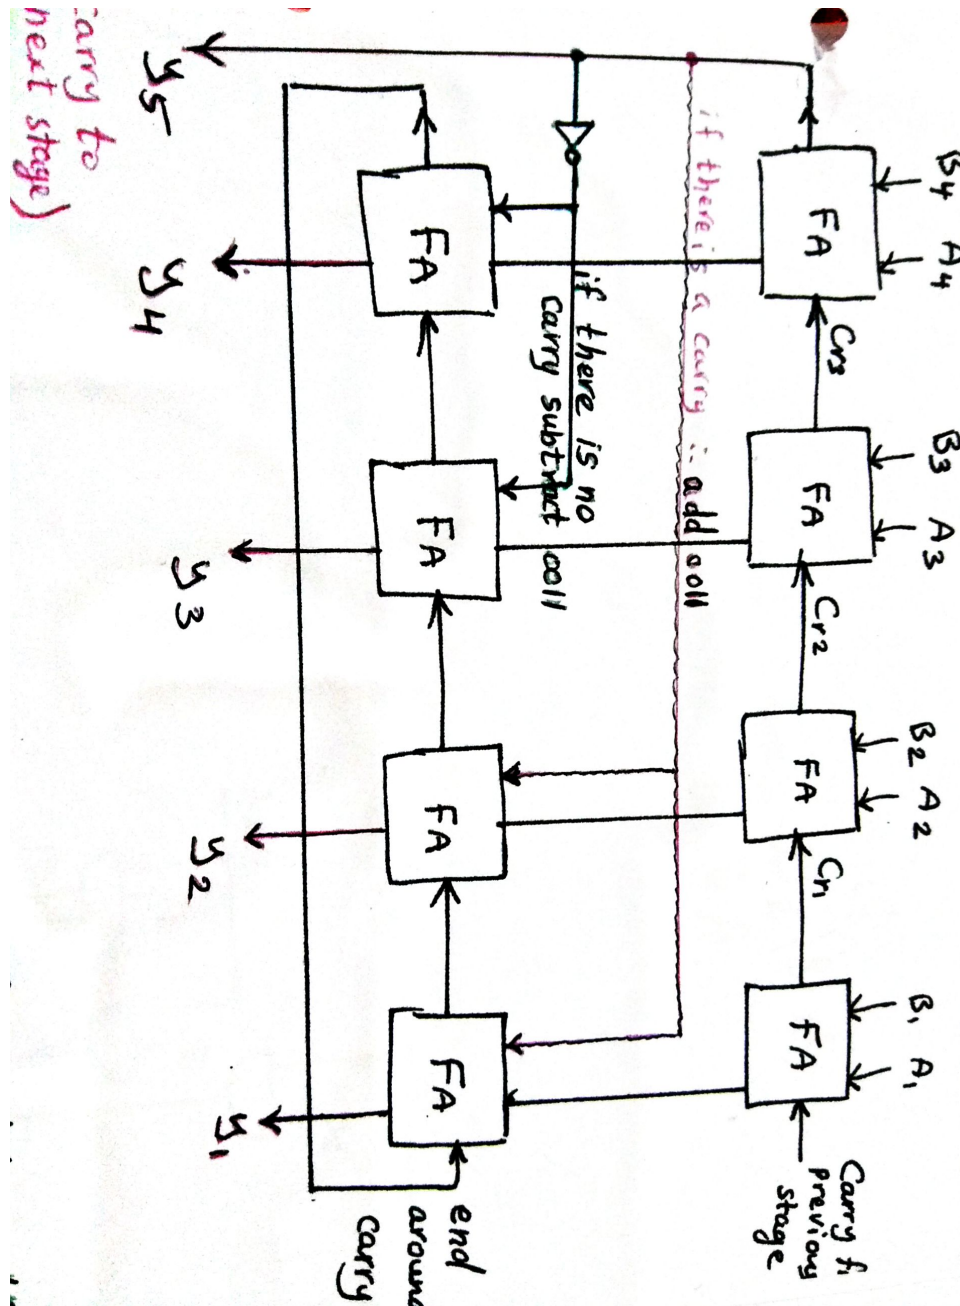 B4 A4
B3 A3
B2 A2
B1 A1
FA
Cr3
FA
Cr2
FA
Cr1
FA
Carry
previous
stage
if there is a carry ∴ add 0011
if there is no
carry subtract 0011
FA
FA
FA
FA
end
around
carry
y5
y4
y3
y2
y1
carry to
next stage)